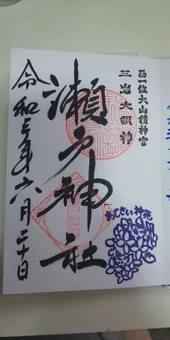 正一位大山積神宮
三島大明神
瀬戸神社
令和三年六月二十日
あじさい